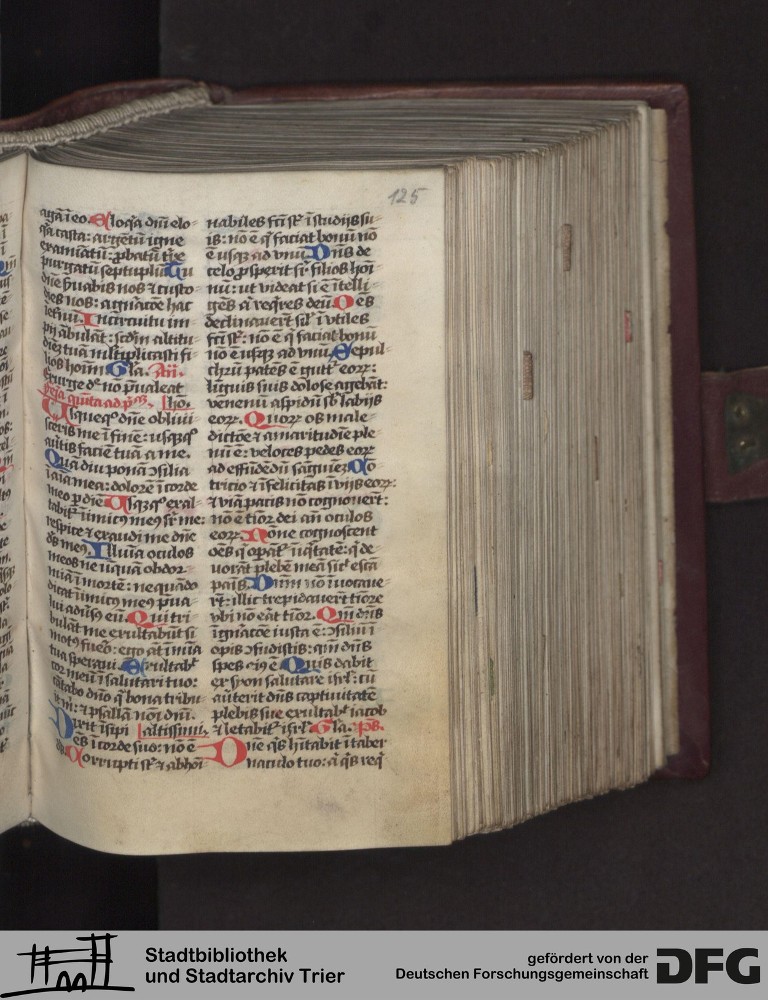 125
agā ī eo. Eloq̄a dñi elo-
q̄a casta: argētū igne
examinātū: ꝓbatū tr̄e
purgatū septuplū. Tu
dñe ẜuabis nos ⁊ custo-
dies nos: a gñatōe hac
Incircuitu im-
pij ābulāt: scd̄m altitu-
diēz tuā mltiplicasti fi-
lios hoīm Gła. Añ.
Exurge dñe nō p̄ualeat
Usqueqꝫ dñe oblivi
sceris me ī finē: usqꝫqꝫ
aūtis faciē tuā a me.
Quā diu ponā ꝯsilia
ī aīa mea: dolorē ī corde
meo p diē Usqꝫqꝫ exal-
tabiť īimicꝰ meꝰ sr̄ me:
respice ⁊ exaudi me dñe
ds̄ meꝰ. Illuīa oculos
meos ne unquā obdor-
miā ī mortē: nequādo
dicat īimicꝰ meꝰ p̄ua-
lui adūsꝰ eū. Qui tri-
bulāt me exultabūt si
motꝰ fueō: ego āt ī mīa
tua speravi. Exultabᵗ
cor meū ī salutari tuo:
cātabo dño q̄ bona tribu-
it m̄: ⁊ psallā nōi dñi.
Dixit īsipi altissimi.
ēs ī corde suo: nō ē
ds̄ Corrupti sᵗ ⁊ abhoī
nabiles fc̄i sᵗ ī studijs su-
is: nō ē q̄ faciat bonū nō
ē usqꝫ ad vnū Dñs de
celo ꝓsperit sr̄ filios hoī
nū: ut videat si ē ītelli-
gēs ā req̄res deū Oēs
declinauerūt sił īvtiles
fc̄i sᵗ: nō ē q̄ faciat bonū
nō ē usqꝫ ad vnū. Sepul-
chrū patēs ē guttʳ eoꝝ:
līguis suis dolose agebāt:
venenū aspidū sᵇ labijs
eoꝝ. Quoꝝ os male-
dictōe ⁊ amaritudīe ple-
nū ē: veloces pedes eoꝝ
ad effūdēdū sāguiēz Cō
tricio ⁊ īfelicitas ī vijs eoꝝ:
⁊ viā pacis nō cognouert̄:
nō ē tīor dei an̄ oculos
eoꝝ. Nōne cognoscent
oēs q̄ opanᵗ īiq̄tatē: q̄ de-
vorāt plebē meā sicᵗ escā
panis. Dnm̄ nō īuocaue-
rt̄: illic trepidauert̄ tīore
vbi nō eāt tīor. Qm̄ dñs
ī gñatōe iusta ē: ꝯsiliū ī
opis ꝯfudistis: qm̄ dñs
spes eiꝰ ē Quis dabit
ex syon salutare isrl̄: cū
aūterit dñs captiuitatē
plebis sue exultabᵗ iacob
⁊ letabiť isrl̄. Gła. p̄s.
Dñe q̄s hītabit ī taber
naculo tuo: ā q̄s req̄
Stadtbibliothek
und Stadtarchiv Trier
gefördert von der
Deutschen Forschungsgemeinschaft
DFG